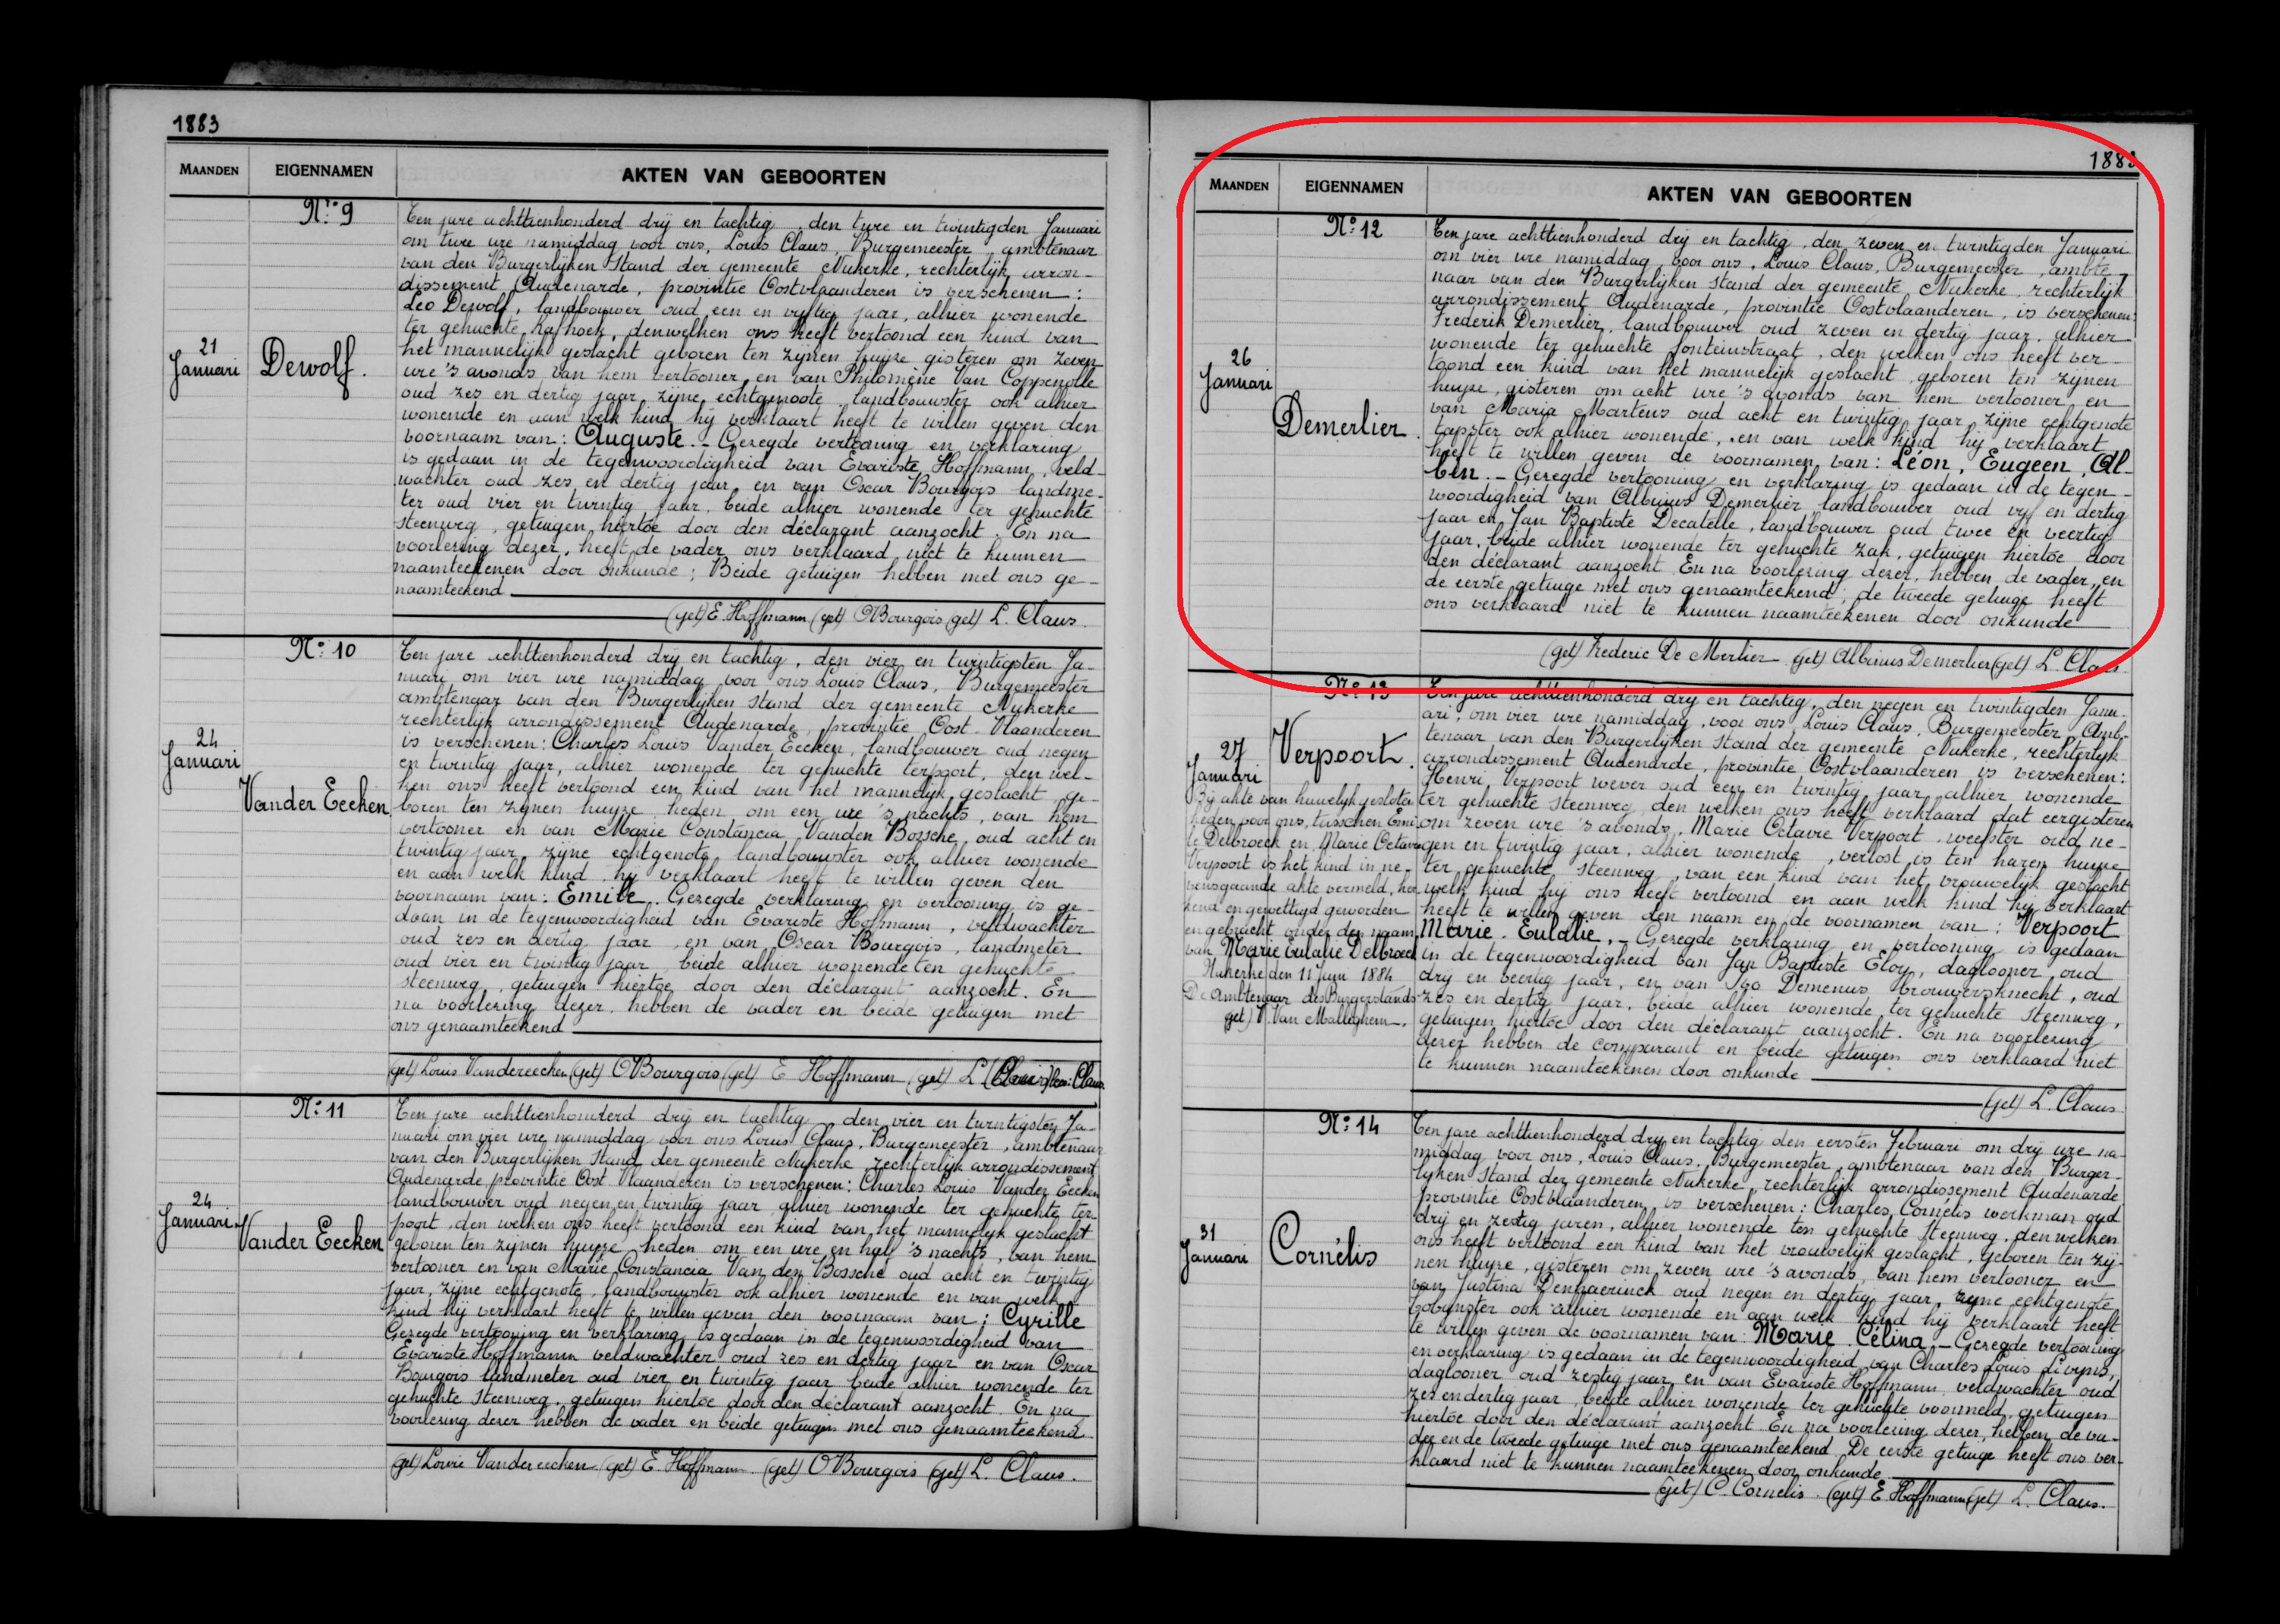 1883
MAANDEN EIGENNAMEN AKTEN VAN GEBOORTEN
Nr° 9
21
Januari
Dewolf.
Ten jare achttienhonderd drij en tachtig, den twee en twintigden Januari
om twee ure namiddag voor ons, Louis Claus, Burgemeester, ambtenaar
van den Burgerlijken Stand der gemeente Nukerke, rechterlijk arron-
dissement Audenarde, provintie Oostvlaanderen is verschenen:
Leo Dewolf, landbouwer oud een en vijftig jaar, alhier wonende
ter gehuchte Kafhoek, denwelken ons heeft vertoond een kind van
het mannelijk geslacht geboren ten zijnen huyze gisteren om zeven
ure 's avonds van hem vertooner en van Philomène Van Coppenolle
oud zes en dertig jaar zijne echtgenoote, landbouwster ook alhier
wonende en aan welk kind hij verklaart heeft te willen geven den
voornaam van: Auguste. – Gezegde vertooning en verklaring
is gedaan in de tegenwoordigheid van Evariste Hoffmann, veld-
wachter oud zes en dertig jaar en van Oscar Bourgois landme-
ter oud vier en twintig jaar, beide alhier wonende ter gehuchte
steenweg, getuigen hiertoe door den déclarant aanzocht. En na
voorlezing dezer, heeft de vader ons verklaard niet te kunnen
naamteekenen door onkunde; Beide getuigen hebben met ons ge-
naamteekend
(get) E. Hoffmann (get) O Bourgois (get) L. Claus.
N° 10
24
Januari
Vander Eecken
Ten jare achttienhonderd drij en tachtig, den vier en twintigsten Ja-
nuari om vier ure namiddag voor ons Louis Claus, Burgemeester
ambtenaar van den Burgerlijken Stand der gemeente Nukerke
rechterlijk arrondissement Audenarde, provintie Oost-Vlaanderen
is verschenen: Charles Louis Vander Eecken, landbouwer oud negen
en twintig jaar, alhier wonende ter gehuchte terpoort, den wel-
ken ons heeft vertoond een kind van het mannelijk geslacht ge-
boren ten zijnen huyze heden om een ure 's nachts, van hem
vertooner en van Marie Constancia Vanden Bossche, oud acht en
twintig jaar zijne echtgenote landbouwster ook alhier wonende
en aan welk kind hij verklaart heeft te willen geven den
voornaam van: Emile. Gezegde verklaring en vertooning is ge-
daan in de tegenwoordigheid van Evariste Hoffmann, veldwachter
oud zes en dertig jaar en van Oscar Bourgois, landmeter
oud vier en twintig jaar beide alhier wonende ten gehuchte
steenweg, getuigen hiertoe door den déclarant aanzocht. En
na voorlezing dezer hebben de vader en beide getuigen met
ons genaamteekend
(get) Louis Vandereecken (get) O Bourgois (get) E Hoffmann (get) L Claus
N° 11
24
Januari
Vander Eecken
Ten jare achttienhonderd drij en tachtig, den vier en twintigsten Ja-
nuari om vier ure namiddag voor ons Louis Claus, Burgemeester, ambtenaar
van den Burgerlijken Stand der gemeente Nukerke, rechterlijk arrondissement
Audenarde provintie Oost Vlaanderen is verschenen: Charles Louis Vander Eecken
landbouwer oud negen en twintig jaar alhier wonende ter gehuchte ter-
poort, den welken ons heeft vertoond een kind van het mannelijk geslacht
geboren ten zijnen huyze heden om een ure en half 's nachts, van hem
vertooner en van Marie Constancia Van den Bossche oud acht en twintig
jaar, zijne echtgenote, landbouwster ook alhier wonende en van welk
kind hij verklaart heeft te willen geven den voornaam van: Cyrille
Gezegde vertooning en verklaring is gedaan in de tegenwoordigheid van
Evariste Hoffmann veldwachter oud zes en dertig jaar en van Oscar
Bourgois landmeter oud vier en twintig jaar beide alhier wonende ter
gehuchte Steenweg, getuigen hiertoe door den déclarant aanzocht. En na
voorlezing dezer hebben de vader en beide getuigen met ons genaamteekend
(get) Louis Vandereecken (get) E Hoffmann (get) O Bourgois (get) L. Claus.
1883
MAANDEN EIGENNAMEN AKTEN VAN GEBOORTEN
N° 12
26
Januari
Demerlier.
Ten jare achttienhonderd drij en tachtig, den zeven en twintigden Januari
om vier ure namiddag, voor ons, Louis Claus, Burgemeester, ambte-
naar van den Burgerlijken Stand der gemeente Nukerke, rechterlijk
arrondissement Audenarde, provintie Oostvlaanderen, is verschenen:
Frederik Demerlier, landbouwer oud zeven en dertig jaar, alhier
wonende ter gehuchte fonteinstraat, den welken ons heeft ver-
toond een kind van het mannelijk geslacht, geboren ten zijnen
huyze, gisteren om acht ure 's avonds van hem vertooner en
van Maria Martens oud acht en twintig jaar, zijne echtgenote
tapster ook alhier wonende, en van welk kind hij verklaart
heeft te willen geven de voornamen van: Léon, Eugeen, Al-
bin. – Gezegde vertooning en verklaring is gedaan in de tegen-
woordigheid van Albinus Demerlier landbouwer oud vijf en dertig
jaar en Jan Baptiste Decatelle, landbouwer oud twee en veertig
jaar, beide alhier wonende ter gehuchte zak, getuigen hiertoe door
den déclarant aanzocht. En na voorlezing dezer, hebben de vader en
de eerste getuige met ons genaamteekend; de tweede getuige heeft
ons verklaard niet te kunnen naamteekenen door onkunde
(get) Frederic De Merlier (get) Albinus Demerlier (get) L. Claus
N° 13
27
Januari
Verpoort.
Bij akte van huwelijk gesloten
heden voor ons, tusschen Emi-
le Delbroeck en Marie Octavie
Verpoort is het kind in ne-
vensgaande akte vermeld, her-
kend en gewettigd geworden
en gebracht onder den naam
van Marie Eulalie Delbroeck
Nukerke den 11 Juni 1884
De Ambtenaar des Burgerstands
get) V. Van Malleghem.
Ten jare achttienhonderd drij en tachtig, den negen en twintigden Janu-
ari, om vier ure namiddag, voor ons Louis Claus, Burgemeester, Amb-
tenaar van den Burgerlijken Stand der gemeente Nukerke, rechterlijk
arrondissement Audenarde, provintie Oostvlaanderen is verschenen:
Henri Verpoort wever oud een en twintig jaar alhier wonende
ter gehuchte steenweg, den welken ons heeft verklaard dat eergisteren
om zeven ure 's avonds, Marie Octavie Verpoort, weefster oud ne-
gen en twintig jaar, alhier wonende, verlost is ten haren huyze
ter gehuchte steenweg, van een kind van het vrouwelijk geslacht
welk kind hij ons heeft vertoond en aan welk kind hij verklaart
heeft te willen geven den naam en de voornamen van: Verpoort
Marie. Eulalie. – Gezegde verklaring en vertooning is gedaan
in de tegenwoordigheid van Jan Baptiste Eloy, daglooner, oud
drij en veertig jaar, en van Ivo Demenus brouwersknecht, oud
zes en dertig jaar, beide alhier wonende ter gehuchte steenweg,
getuigen hiertoe door den déclarant aanzocht. En na voorlezing
dezer hebben de comparant en beide getuigen ons verklaard niet
te kunnen naamteekenen door onkunde
(get) L. Claus
N° 14
31
Januari
Cornélis
Ten jare achttienhonderd drij en tachtig den eersten februari om drij ure na-
middag voor ons, Louis Claus, Burgemeester, ambtenaar van den Burger-
lijken Stand der gemeente Nukerke, rechterlijk arrondissement Audenarde
provintie Oostvlaanderen, is verschenen: Charles Cornélis werkman oud
drij en zestig jaren, alhier wonende ten gehuchte Steenweg, den welken
ons heeft vertoond een kind van het vrouwelijk geslacht, geboren ten zij-
nen huyze, gisteren om zeven ure 's avonds, van hem vertooner en
van Justina Denhaerinck oud negen en dertig jaar, zijne echtgenote
bobijnster ook alhier wonende en aan welk kind hij verklaart heeft
te willen geven de voornamen van: Marie. Célina – Gezegde vertooning
en verklaring is gedaan in de tegenwoordigheid van Charles Louis
daglooner oud zestig jaar, en van Evariste Hoffmann, veldwachter oud
zes en dertig jaar, beide alhier wonende ter gehuchte voormeld, getuigen
hiertoe door den déclarant aanzocht. En na voorlezing dezer, hebben de va-
der en de tweede getuige met ons genaamteekend. De eerste getuige heeft ons ver-
klaard niet te kunnen naamteekenen door onkunde
(get) C. Cornelis. (get) E Hoffmann (get) L. Claus.